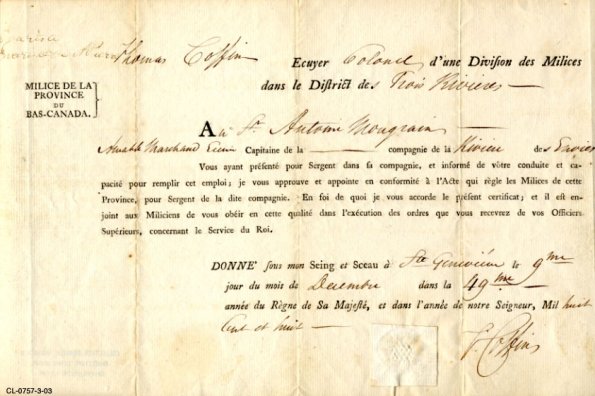 Thomas Coffin Ecuyer Colonel d'une Division des Milices
dans le District des Trois Rivieres
MILICE DE LA
PROVINCE
DU
BAS-CANADA.
A u Sr. Antoine Mongrain
Amable Marchand Ecuier Capitaine de la compagnie de la Riviere des Envies
Vous ayant présenté pour Sergent dans sa compagnie, et informé de vôtre conduite et ca-
pacité pour remplir cet emploi; je vous approuve et appointe en conformité à l'Acte qui règle les Milices de cette
Province, pour Sergent de la dite compagnie. En foi de quoi je vous accorde le présent certificat; et il est en-
joint aux Miliciens de vous obéir en cette qualité dans l'exécution des ordres que vous recevrez de vos Officiers
Supérieurs, concernant le Service du Roi.
DONNE' sous mon Seing et Sceau à Ste Genevieve le 9me
jour du mois de Decembre dans la 49me
année du Règne de Sa Majesté, et dans l'année de notre Seigneur, Mil huit
Cent et huit
T. Coffin
CL-0757-3-03